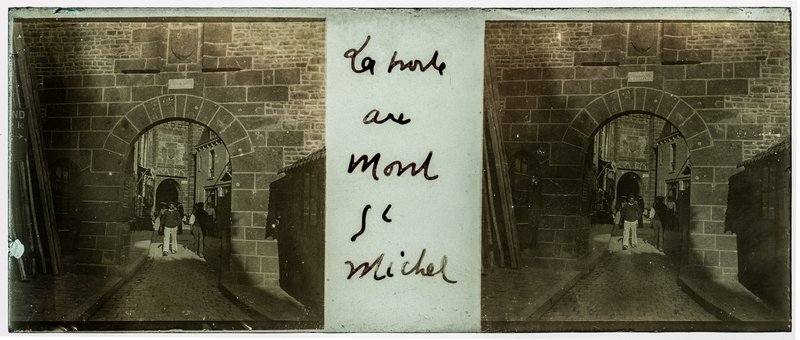 La porte
are
Mont
St
Michel
ND